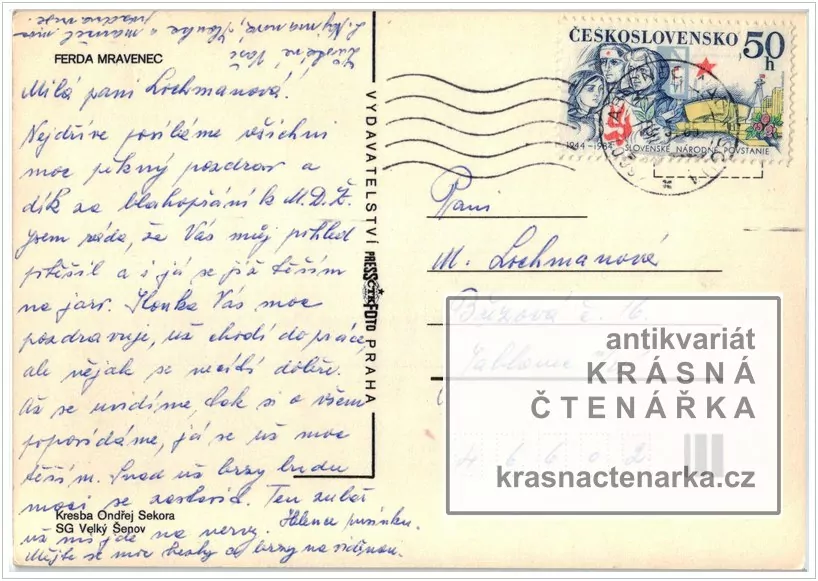 FERDA MRAVENEC
Milá paní Lochmanová!
Nejdříve posíláme všichni
moc pěkný pozdrav a
dík za blahopřání k M.D.Ž.
Jsem ráda, že Vás můj pohled
potěšil a i já se již těším
na jaro. Ilonka Vás moc
pozdravuje, už chodí do práce,
ale nějak se necítí dobře.
Až se uvidíme, tak si o všem
popovídáme, já se už moc
těším. Snad už brzy budu
moci se zastavit. Ten zubař
už mi jde na nervy. Helence pusinku.
Mějte se moc hezky a brzy na viděnou.
Kresba Ondřej Sekora
SG Velký Šenov
VYDAVATELSTVÍ PRESSFOTO PRAHA
ČTK
ČESKOSLOVENSKO 50 h
1944–1984 SLOVENSKÉ NÁRODNÉ POVSTANIE
Paní
M. Lochmanová
Březová č. 16
Jablonec
46602
antikvariát
KRÁSNÁ
ČTENÁŘKA
krasnactenarka.cz